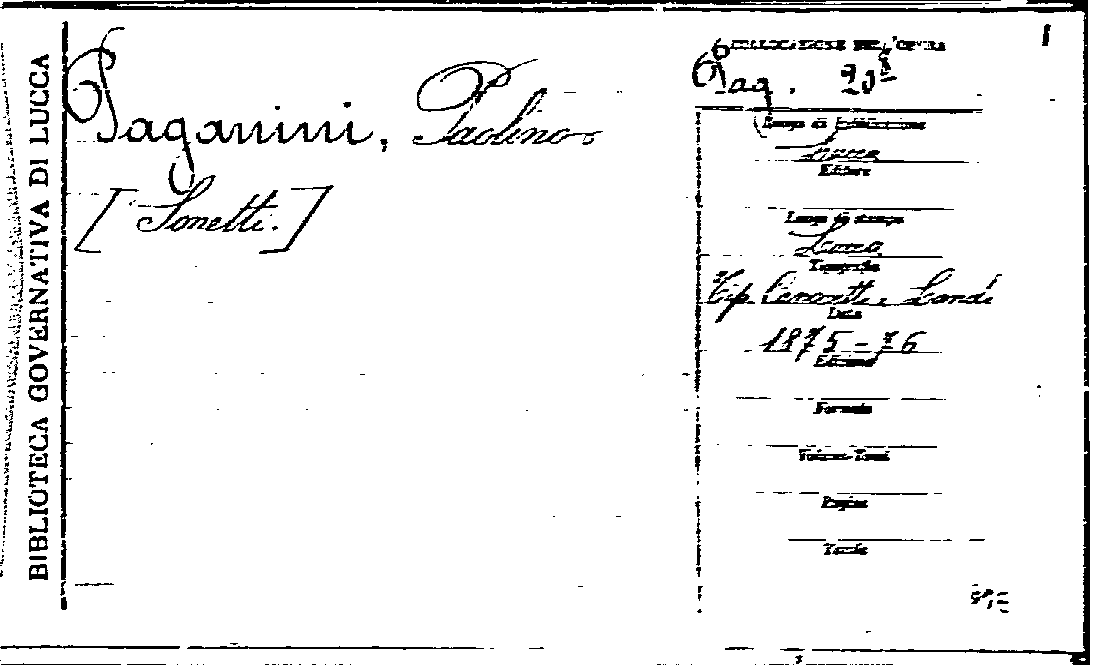 BIBLIOTECA GOVERNATIVA DI LUCCA
Paganini, Paolino
[Sonetti.]
COLLOCAZIONE DELL'OPERA
Pag. 20
Luogo di pubblicazione
Lucca
Editore
Luogo di stampa
Lucca
Tipografia
Tip. Canovetti e Landi
Data
1875-76
Edizione
Formato
Volumi-Tomi
Pagine
Tavole